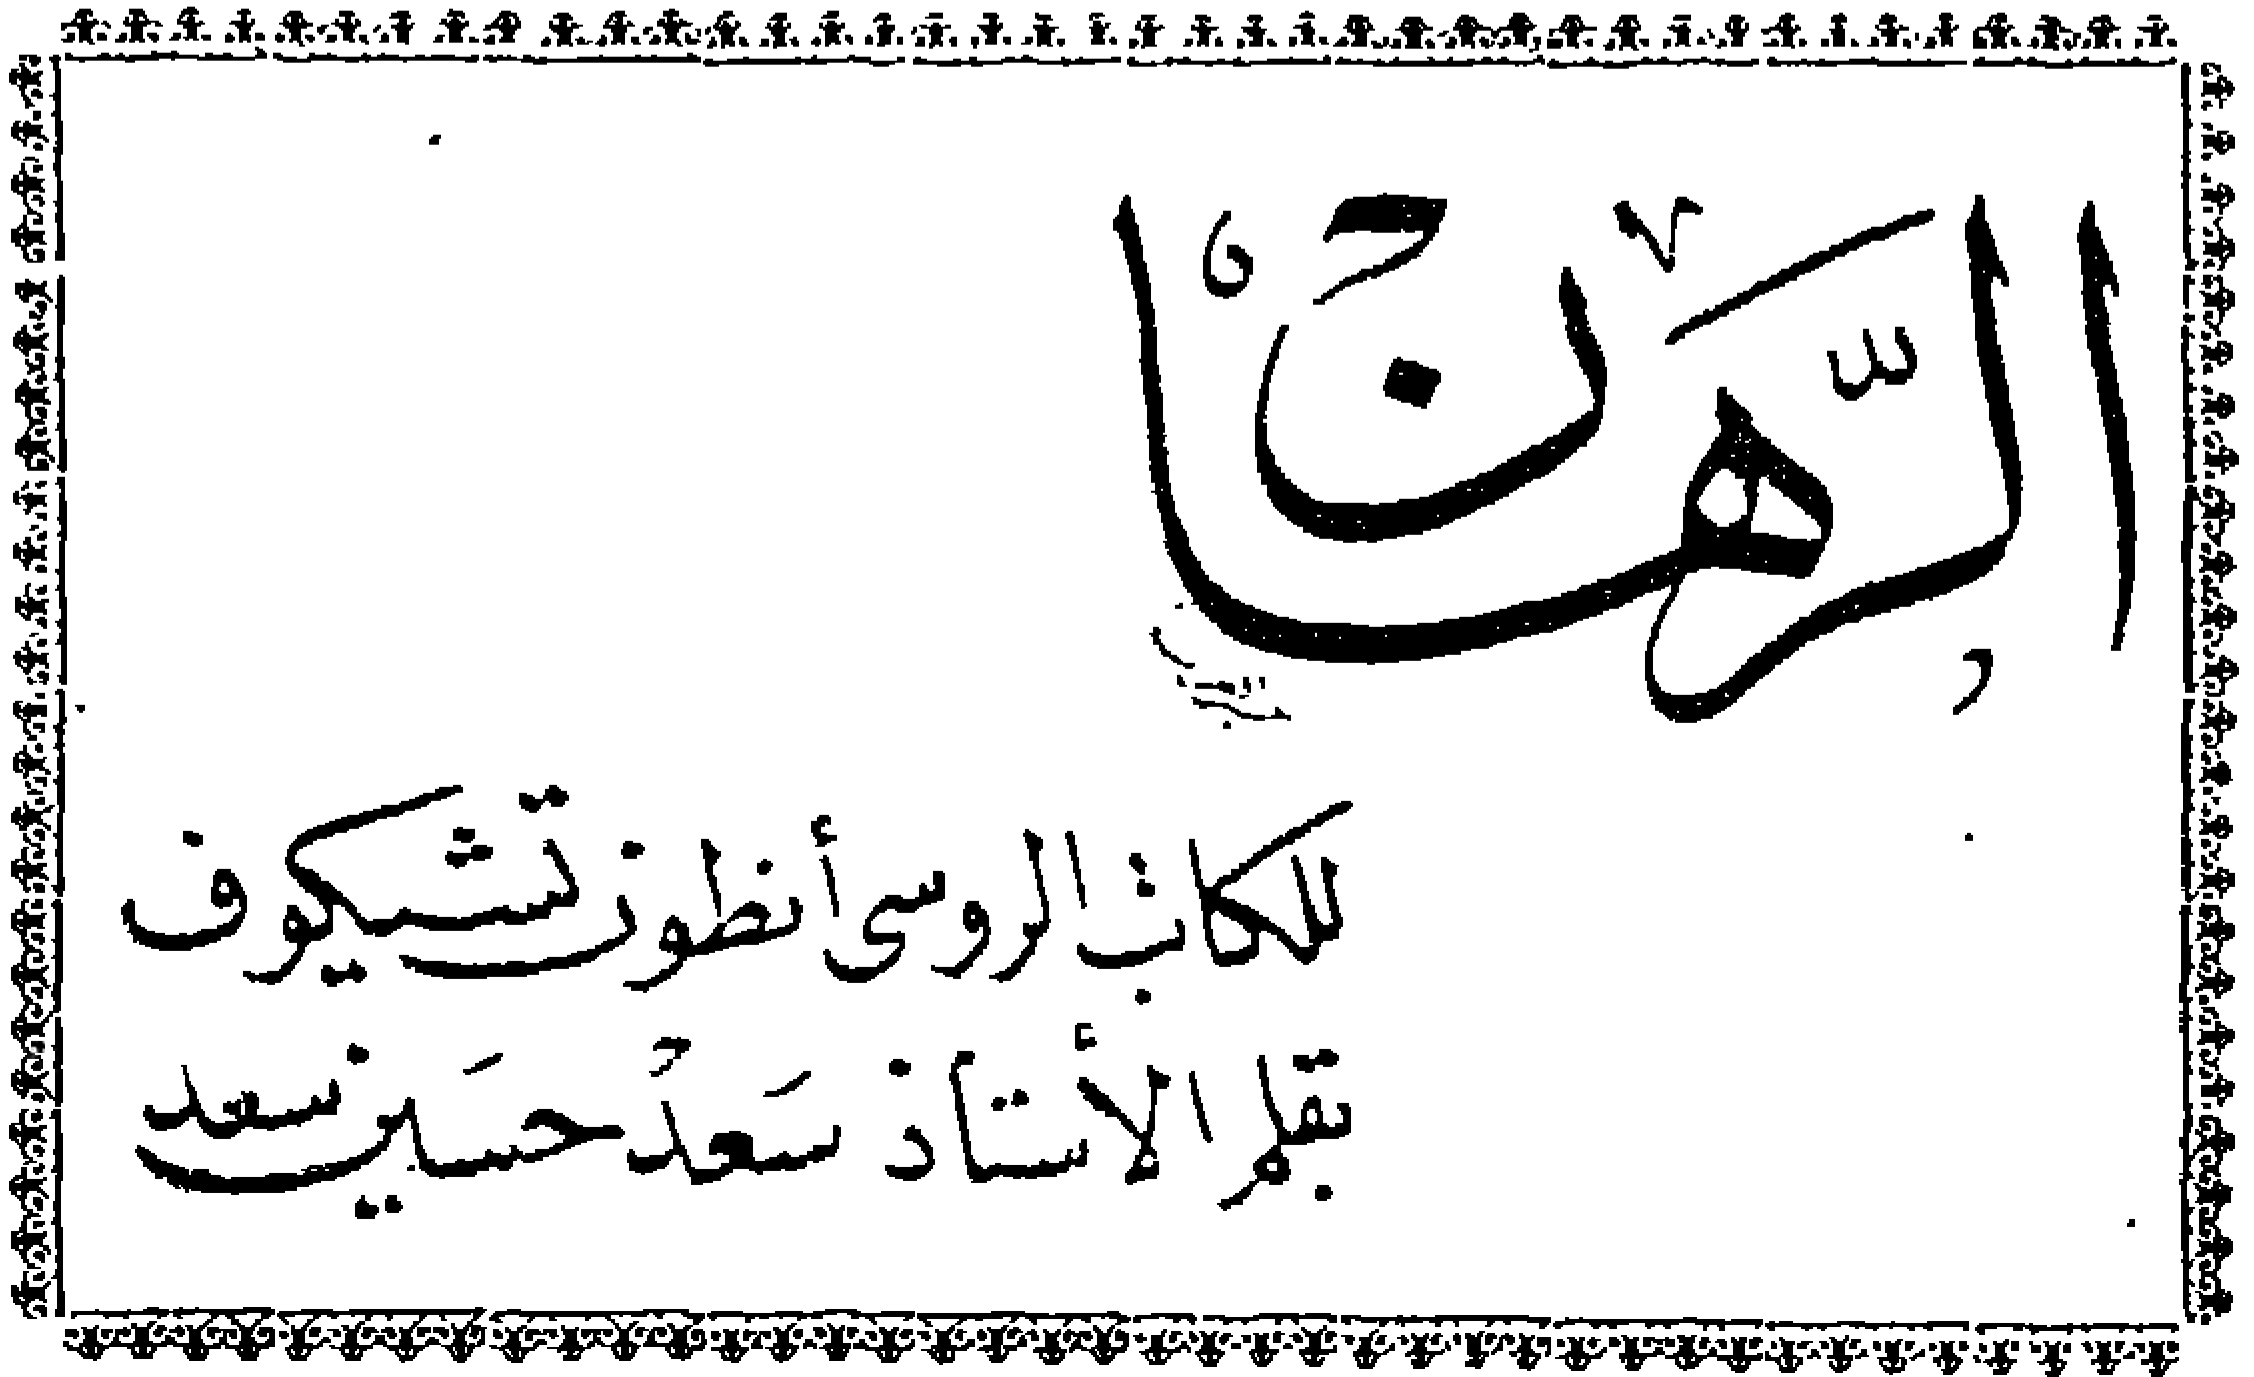 الرهان
للكاتب الروسى أنطون تشيكوف
بقلم الأستاذ سعد حسين سعد